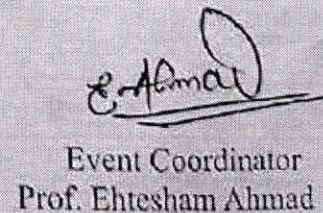 E. Ahmad
Event Coordinator
Prof. Ehtesham Ahmad